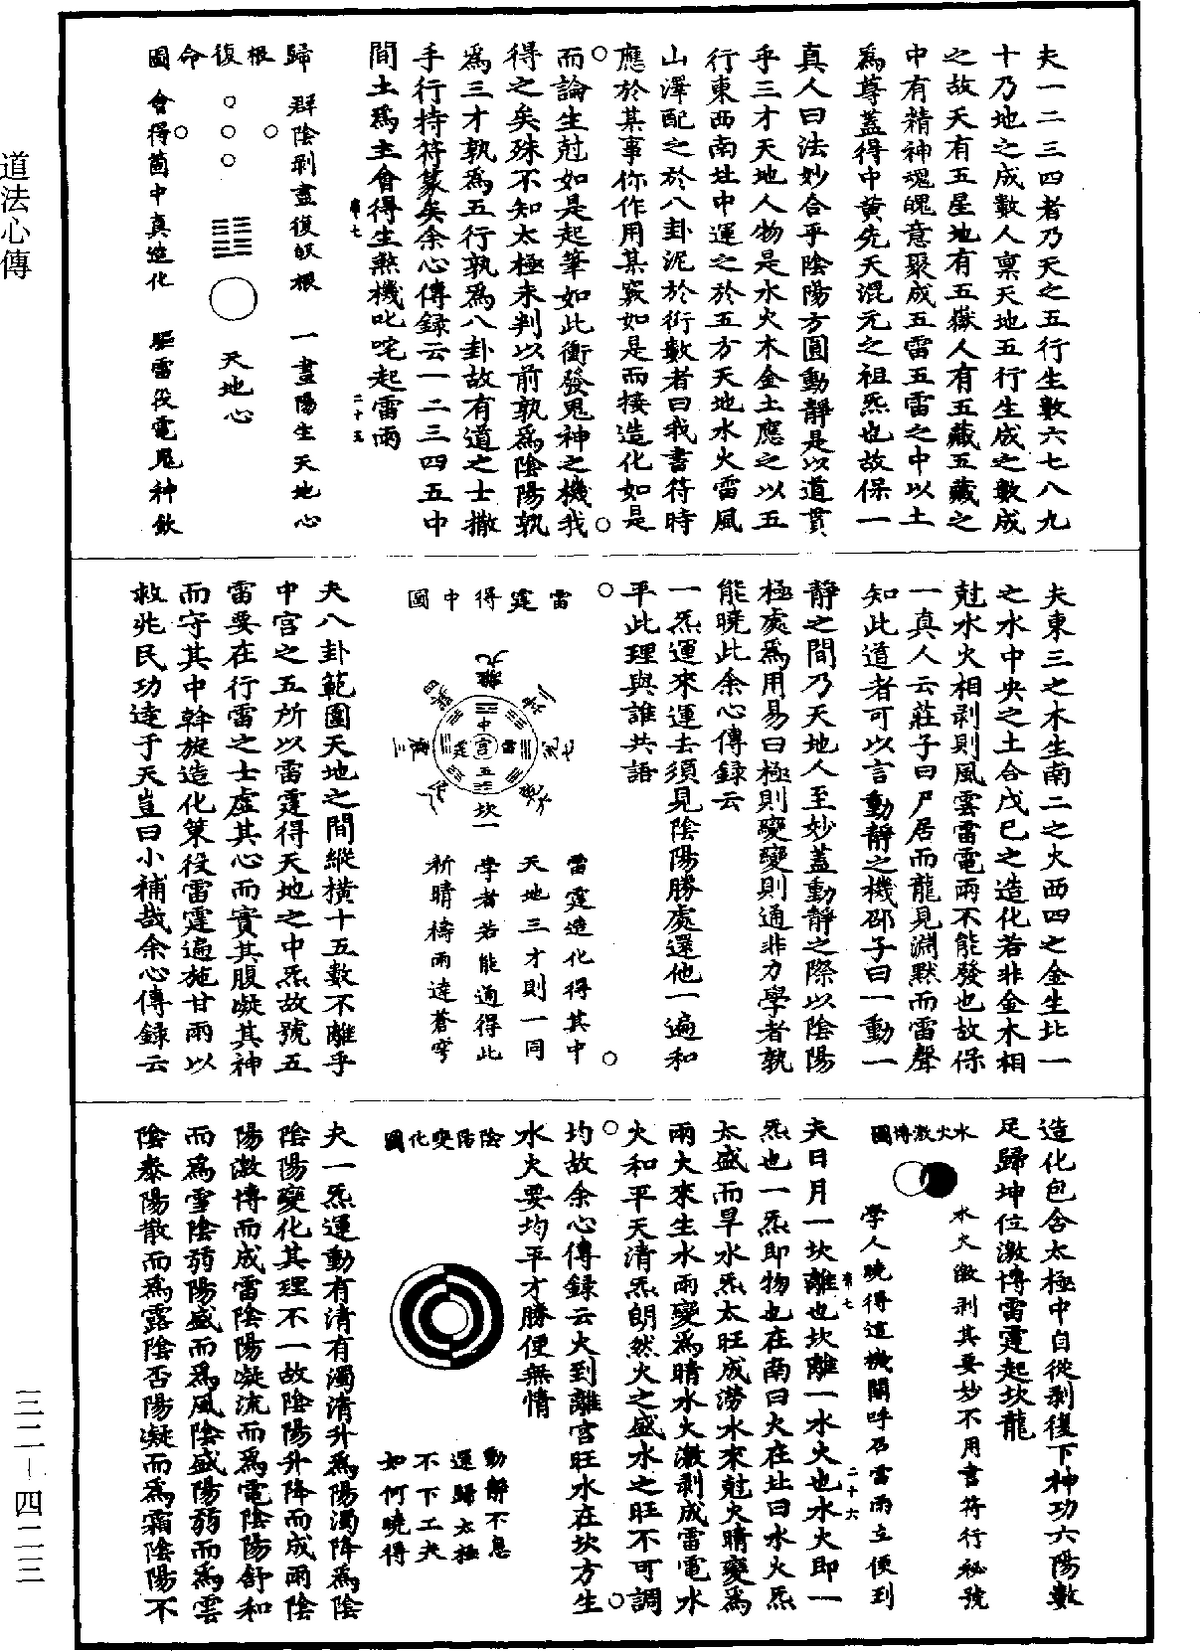 道法心傳
夫一二三四者乃天之五行生數六七八九
十乃地之成數人稟天地五行生成之數成
之故天有五星地有五嶽人有五藏五藏之
中有精神魂魄意聚成五雷五雷之中以土
為尊蓋得中黃先天混元之祖炁也故保一
真人曰法妙合乎陰陽方圓動靜是以道貫
乎三才天地人物是水火木金土應之以五
行東西南北中運之於五方天地水火雷風
山澤配之於八卦泥於術數者曰我書符時
應於某事你作用某竅如是而接造化如是
而論生尅如是起筆如此衝發鬼神之機我
得之矣殊不知太極未判以前孰為陰陽孰
為三才孰為五行孰為八卦故有道之士撒
手行持符篆矣余心傳錄云一二三四五中
間土為主會得生煞機叱咤起雷雨
歸根復命圖
群陰剝盡復皈根
一畫陽生天地心
天地心
會得箇中真造化
驅雷役電鬼神欽
夫東三之木生南二之火西四之金生北一
之水中央之土合戊己之造化若非金木相
尅水火相剥則風雲雷電雨不能發也故保
一真人云莊子曰尸居而龍見淵默而雷聲
知此道者可以言動靜之機邵子曰一動一
靜之間乃天地人至妙蓋動靜之際以陰陽
極處為用易曰極則變變則通非力學者孰
能曉此余心傳錄云
一炁運來運去須見陰陽勝處還他一遍和
平此理與誰共語
雷霆得中圖
離九
坎一
中宮五
雷霆造化得其中
天地三才則一同
學者若能通得此
祈晴禱雨達蒼穹
夫八卦範圍天地之間縱橫十五數不離乎
中宮之五所以雷霆得天地之中炁故號五
雷要在行雷之士虛其心而實其腹凝其神
而守其中斡旋造化策役雷霆遍施甘雨以
救兆民功達于天豈曰小補哉余心傳錄云
造化包含太極中自從剥復下神功六陽數
足歸坤位激博雷霆起坎龍
水火激博圖
水火激剥其要妙不用書符行秘號
學人曉得這機關呼召雷雨立便到
夫日月一坎離也坎離一水火也水火即一
炁也一炁即物也在南曰火在北曰水火炁
太盛而旱水炁太旺成澇水來尅火晴變為
雨火來生水雨變為晴水火激剥成雷電水
火和平天清炁朗然火之盛水之旺不可調
均故余心傳錄云火到離宮旺水在坎方生
水火要均平才勝便無情
陰陽變化圖
動靜不息
還歸太極
不下工夫
如何曉得
夫一炁運動有清有濁清升為陽濁降為陰
陰陽變化其理不一故陰陽升降而成雨陰
陽激博而成雷陰陽凝流而為電陰陽舒和
而為雪陰弱陽盛而為風陰盛陽弱而為雲
陰泰陽散而為露陰否陽凝而為霜陰陽不
三二－四二三